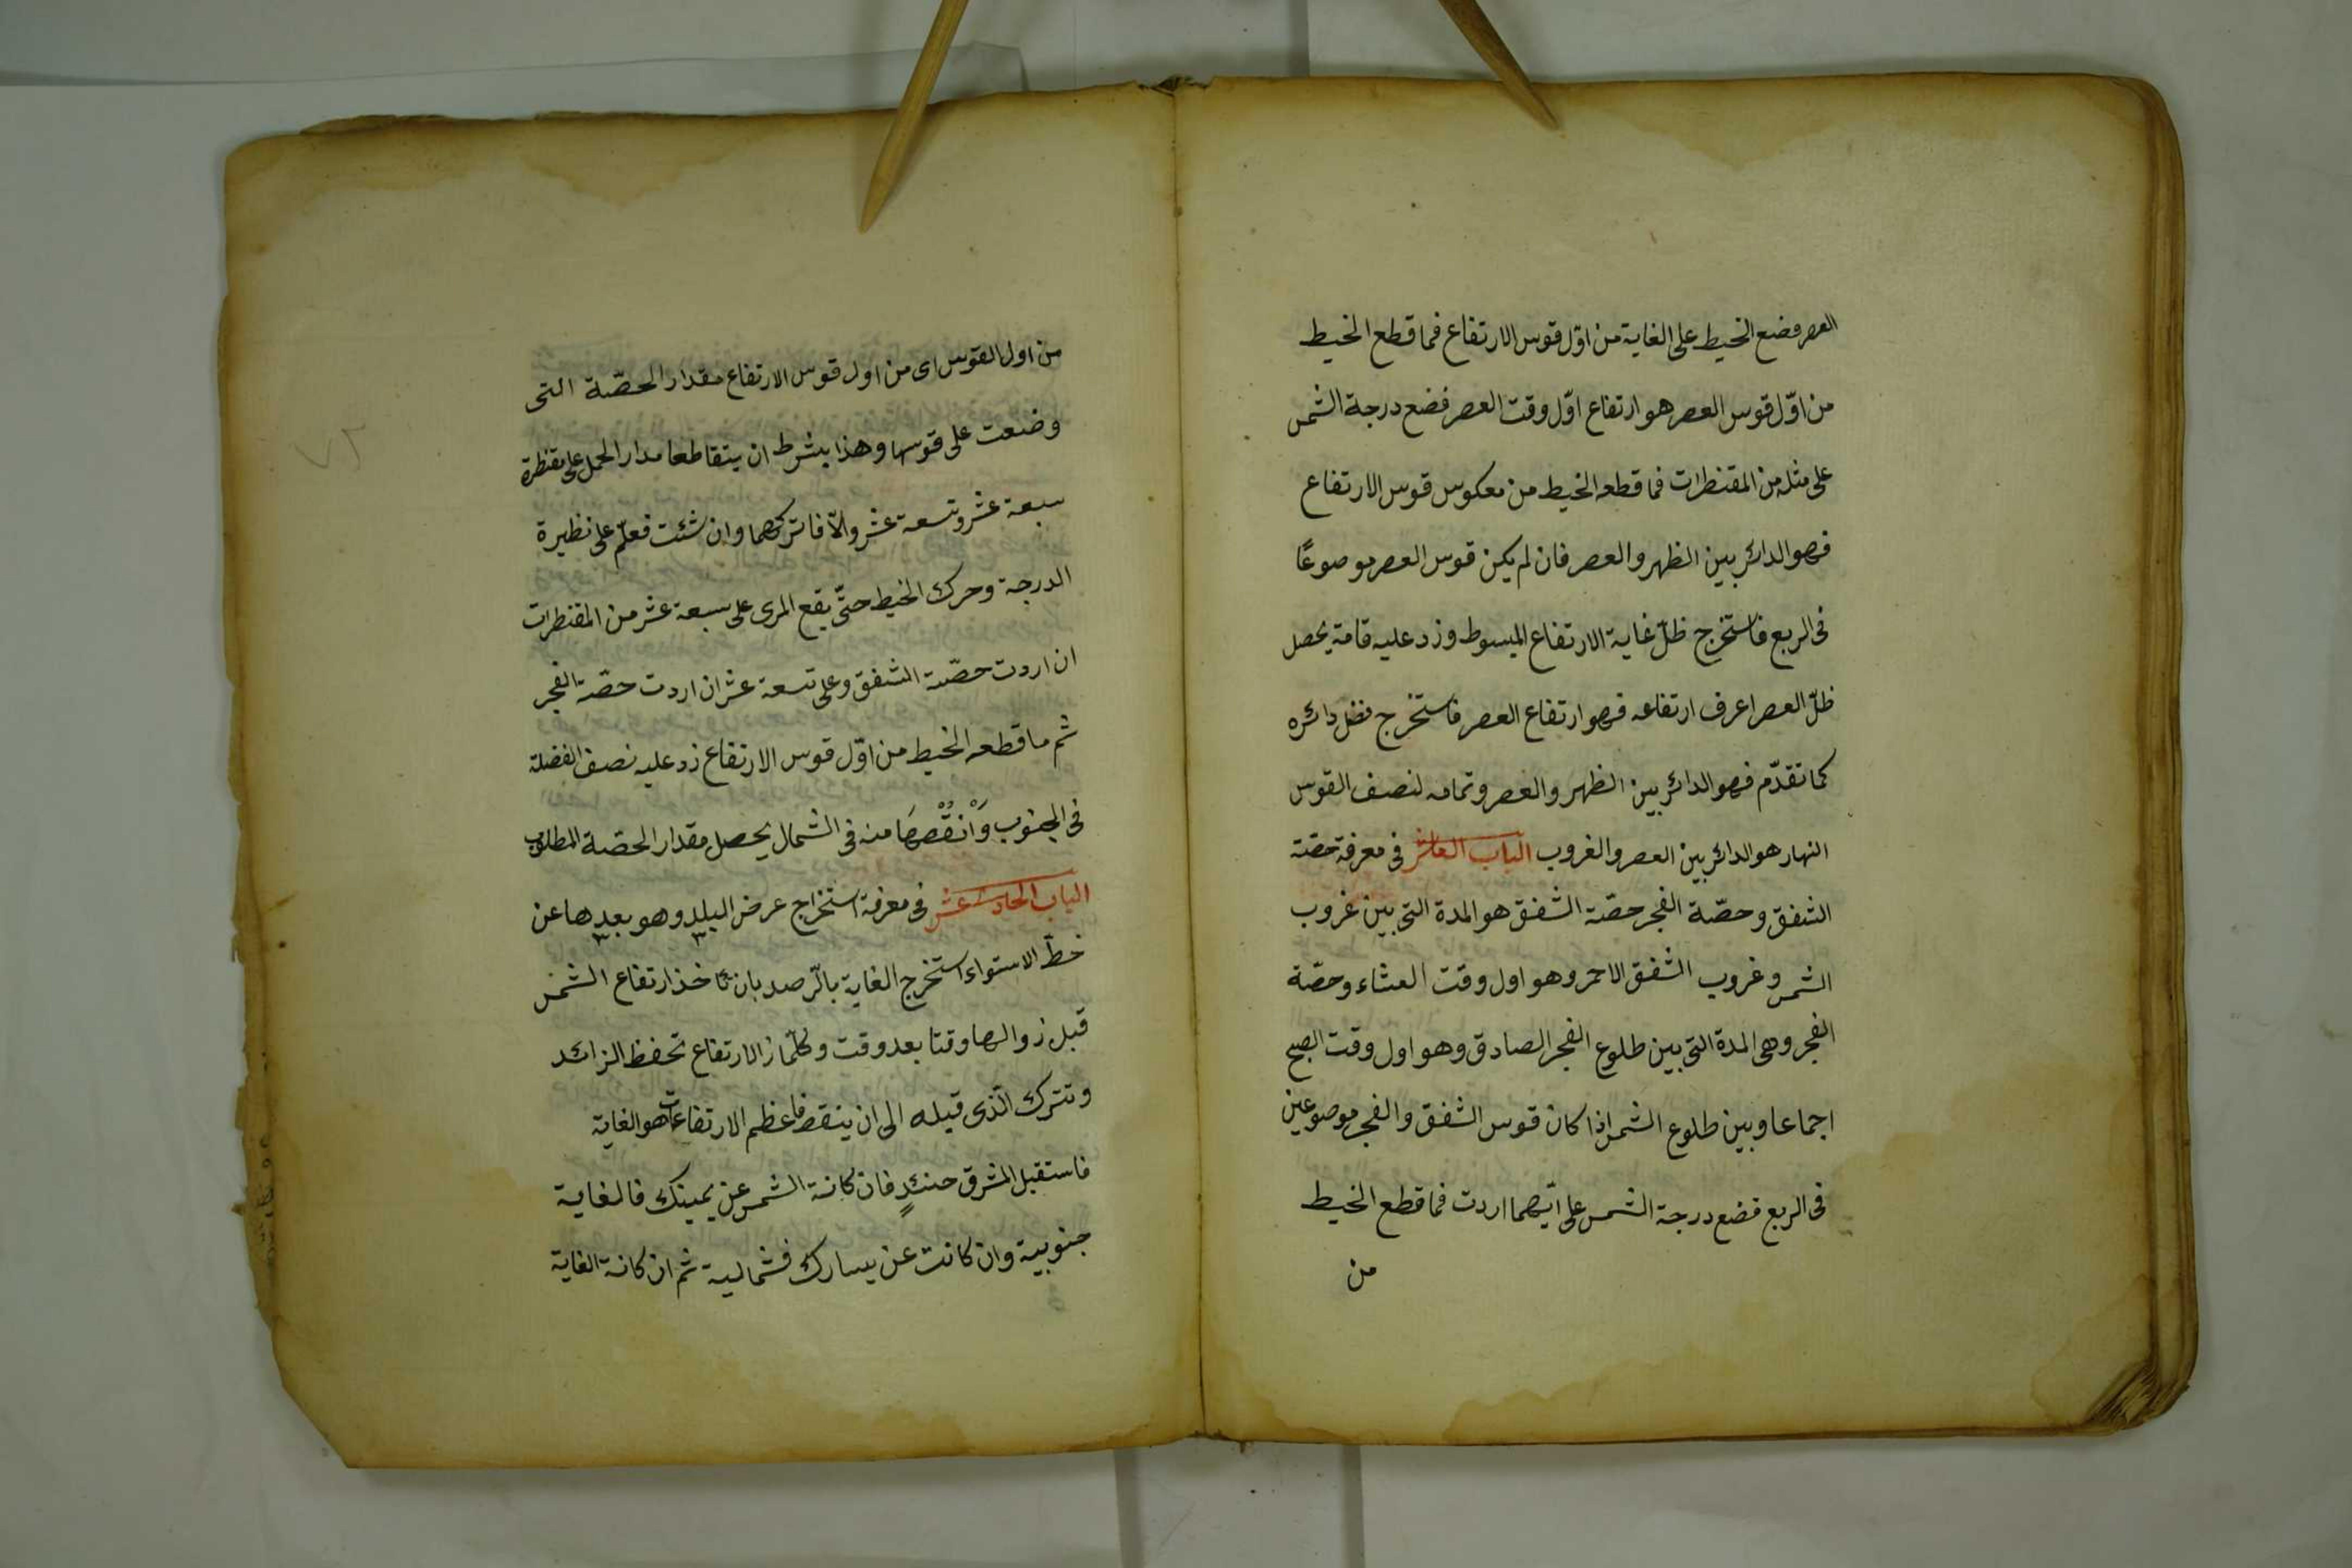 العصر فضع الخيط على الغاية من اوّل قوس الارتفاع فما قطع الخيط
من اوّل قوس العصر هو ارتفاع اوّل وقت العصر فضع درجة الشمس
على مثله من المقنطرات فما قطعه الخيط من معكوس قوس الارتفاع
فهو الدائر بين الظهر والعصر فان لم يكن قوس العصر موضوعًا
فى الربع فاستخرج ظلّ غاية الارتفاع المبسوط وزد عليه قامة يحصل
ظلّ العصر اعرف ارتفاعه فهو ارتفاع العصر فاستخرج فضل دائره
كما تقدّم فهو الدائر بين الظهر والعصر وتمامه لنصف القوس
النهار هو الدائر بين العصر والغروب الباب العاشر فى معرفة حصّة
الشفق وحصّة الفجر حصّة الشفق هو المدة التى بين غروب
الشمس وغروب الشفق الاحمر وهو اول وقت العشاء وحصّة
الفجر وهى المدة التى بين طلوع الفجر الصادق وهو اول وقت الصبح
اجماعا وبين طلوع الشمس اذا كان قوس الشفق والفجر موضوعين
فى الربع فضع درجة الشمس على ايّهما اردت فما قطع الخيط
من
من اول القوس اى من اول قوس الارتفاع مقدار الحصّة التى
وضعت على قوسها وهذا بشرط ان يتقاطعا مدار الحمل على مقنطرة
سبعة عشر وتسعة عشر والّا فاتركهما وان شئت فعلّم على نظيرة
الدرجة وحرك الخيط حتّى يقع المرى على سبعة عشر من المقنطرات
ان اردت حصّة الشفق وعلى تسعة عشر ان اردت حصّة الفجر
ثم ما قطعه الخيط من اوّل قوس الارتفاع زد عليه نصف الفضلة
فى الجنوب وَانْقُصْهَا منه فى الشمال يحصل مقدار الحصّة المطلوب
الباب الحادى عشر فى معرفة استخراج عرض البلد وهو بعدها عن
خطّ الاستواء استخرج الغاية بالرّصد بان تأخذ ارتفاع الشمس
قبل زوالها وقتا بعد وقت وكلّما زالارتفاع تحفظ الزائد
وتترك الّذى قبله الى ان ينقص فاعظم الارتفاعات هو الغاية
فاستقبل المشرق حنئذٍ فان كانة الشمس عن يمينك فالغاية
جنوبية وان كانت عن يسارك فشمالية ثم ان كانة الغاية